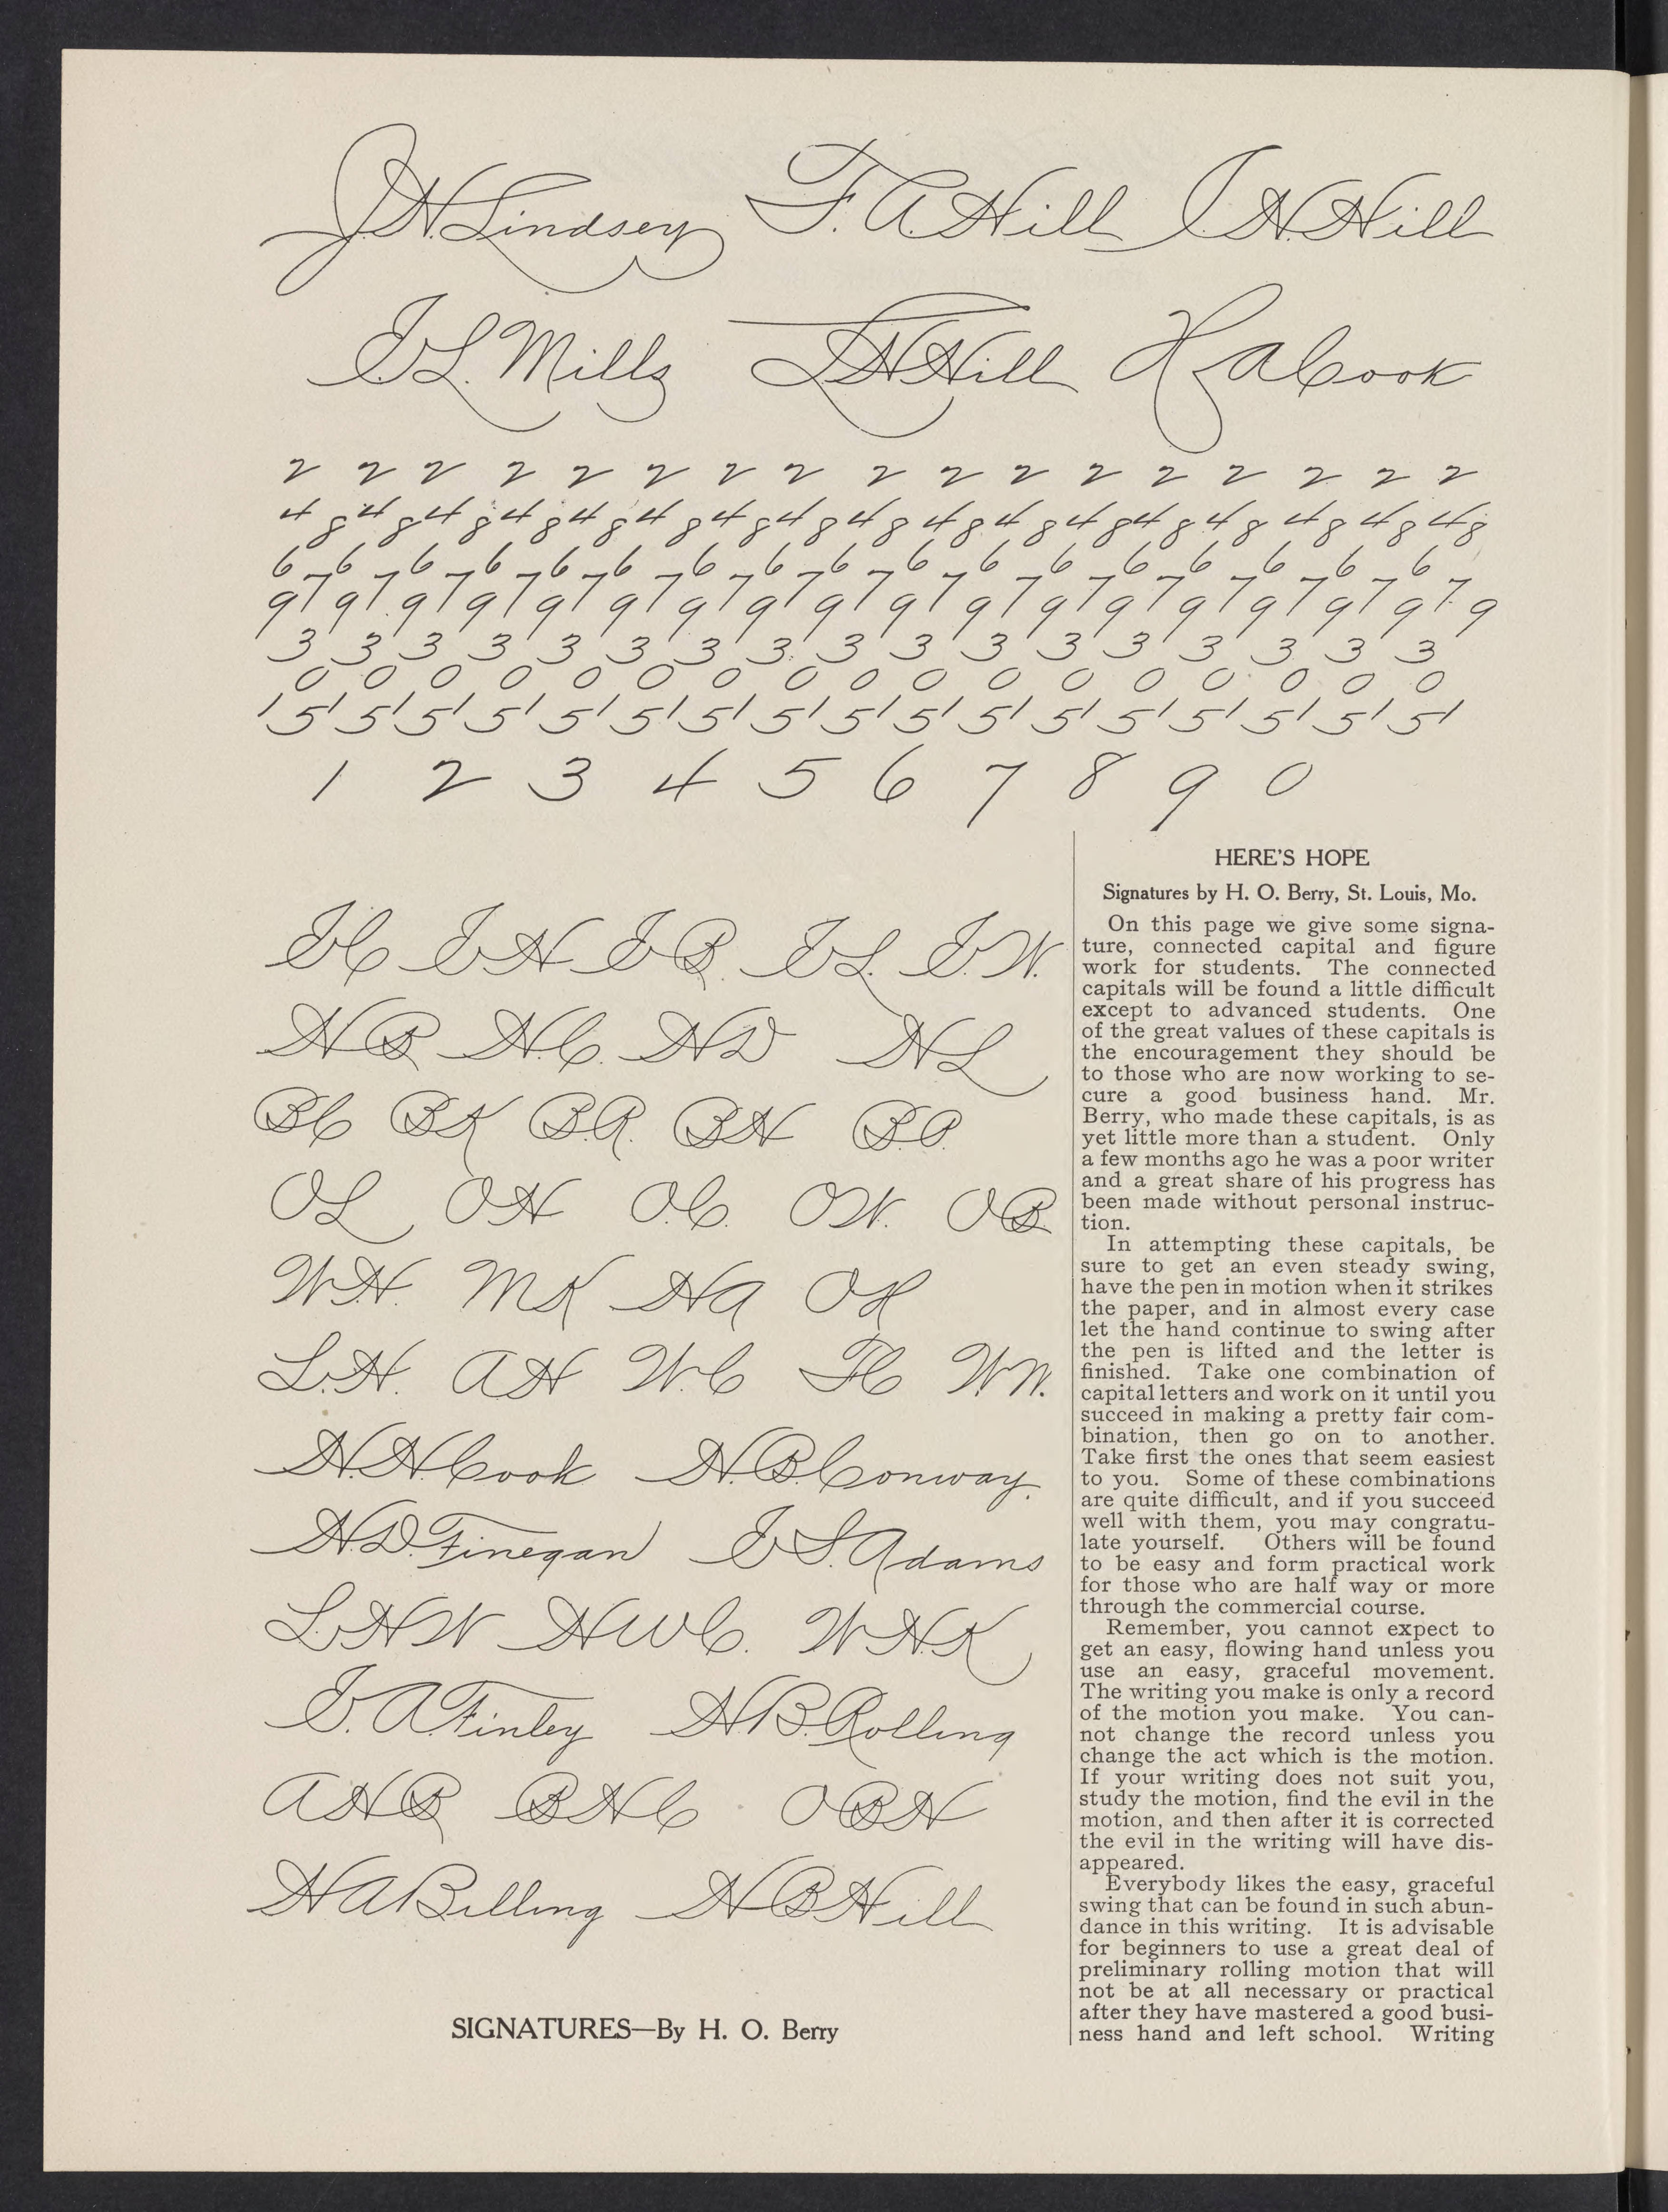 J. H. Lindsey F. A. Hill I H. Hill
I. L. Mills L H Hill H A Cook
2 2 2 2 2 2 2 2 2 2 2 2 2 2 2 2 2
4 8 4 8 4 8 4 8 4 8 4 8 4 8 4 8 4 8 4 8 4 8 4 8 4 8 4 8 4 8 4 8 4 8
6 6 6 6 6 6 6 6 6 6 6 6 6 6 6 6 6
7 7 7 7 7 7 7 7 7 7 7 7 7 7 7 7 7
9 9 9 9 9 9 9 9 9 9 9 9 9 9 9 9 9 9
3 3 3 3 3 3 3 3 3 3 3 3 3 3 3 3 3
0 0 0 0 0 0 0 0 0 0 0 0 0 0 0 0 0
1 5 1 5 1 5 1 5 1 5 1 5 1 5 1 5 1 5 1 5 1 5 1 5 1 5 1 5 1 5 1 5 1 5 1
1 2 3 4 5 6 7 8 9 0
I C I H I R. I L. I. W.
H R H. C. H D H L
B C B K B. R. B H B. P.
O L O H O. C. O W. O B.
W. H. M K H A O H
L. H. A H W. C F C W. W.
H. H. Cook H. B. Conway.
H. D. Finegan I S. Adams
L. H W H W C. W H. K
I. A. Finley H B. Rolling
A H R B H C O B H
H A Billing H B Hill
SIGNATURES—By H. O. Berry
HERE'S HOPE
Signatures by H. O. Berry, St. Louis, Mo.
On this page we give some signa-
ture, connected capital and figure
work for students. The connected
capitals will be found a little difficult
except to advanced students. One
of the great values of these capitals is
the encouragement they should be
to those who are now working to se-
cure a good business hand. Mr.
Berry, who made these capitals, is as
yet little more than a student. Only
a few months ago he was a poor writer
and a great share of his progress has
been made without personal instruc-
tion.
In attempting these capitals, be
sure to get an even steady swing,
have the pen in motion when it strikes
the paper, and in almost every case
let the hand continue to swing after
the pen is lifted and the letter is
finished. Take one combination of
capital letters and work on it until you
succeed in making a pretty fair com-
bination, then go on to another.
Take first the ones that seem easiest
to you. Some of these combinations
are quite difficult, and if you succeed
well with them, you may congratu-
late yourself. Others will be found
to be easy and form practical work
for those who are half way or more
through the commercial course.
Remember, you cannot expect to
get an easy, flowing hand unless you
use an easy, graceful movement.
The writing you make is only a record
of the motion you make. You can-
not change the record unless you
change the act which is the motion.
If your writing does not suit you,
study the motion, find the evil in the
motion, and then after it is corrected
the evil in the writing will have dis-
appeared.
Everybody likes the easy, graceful
swing that can be found in such abun-
dance in this writing. It is advisable
for beginners to use a great deal of
preliminary rolling motion that will
not be at all necessary or practical
after they have mastered a good busi-
ness hand and left school. Writing